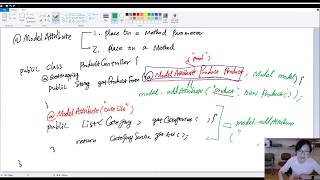 @ModelAttribute
1. place on a Method Parameter
2. place on a Method
("prod")
public class ProductController {
@GetMapping
public String getProductForm (@ModelAttribute Product product, Model model) {
model.addAttribute("product", new Product());
}
@ModelAttribute("cateList")
public List<Category> getCategories() {
return categoryService.getAll();
}
= model.addAttribute
("
}